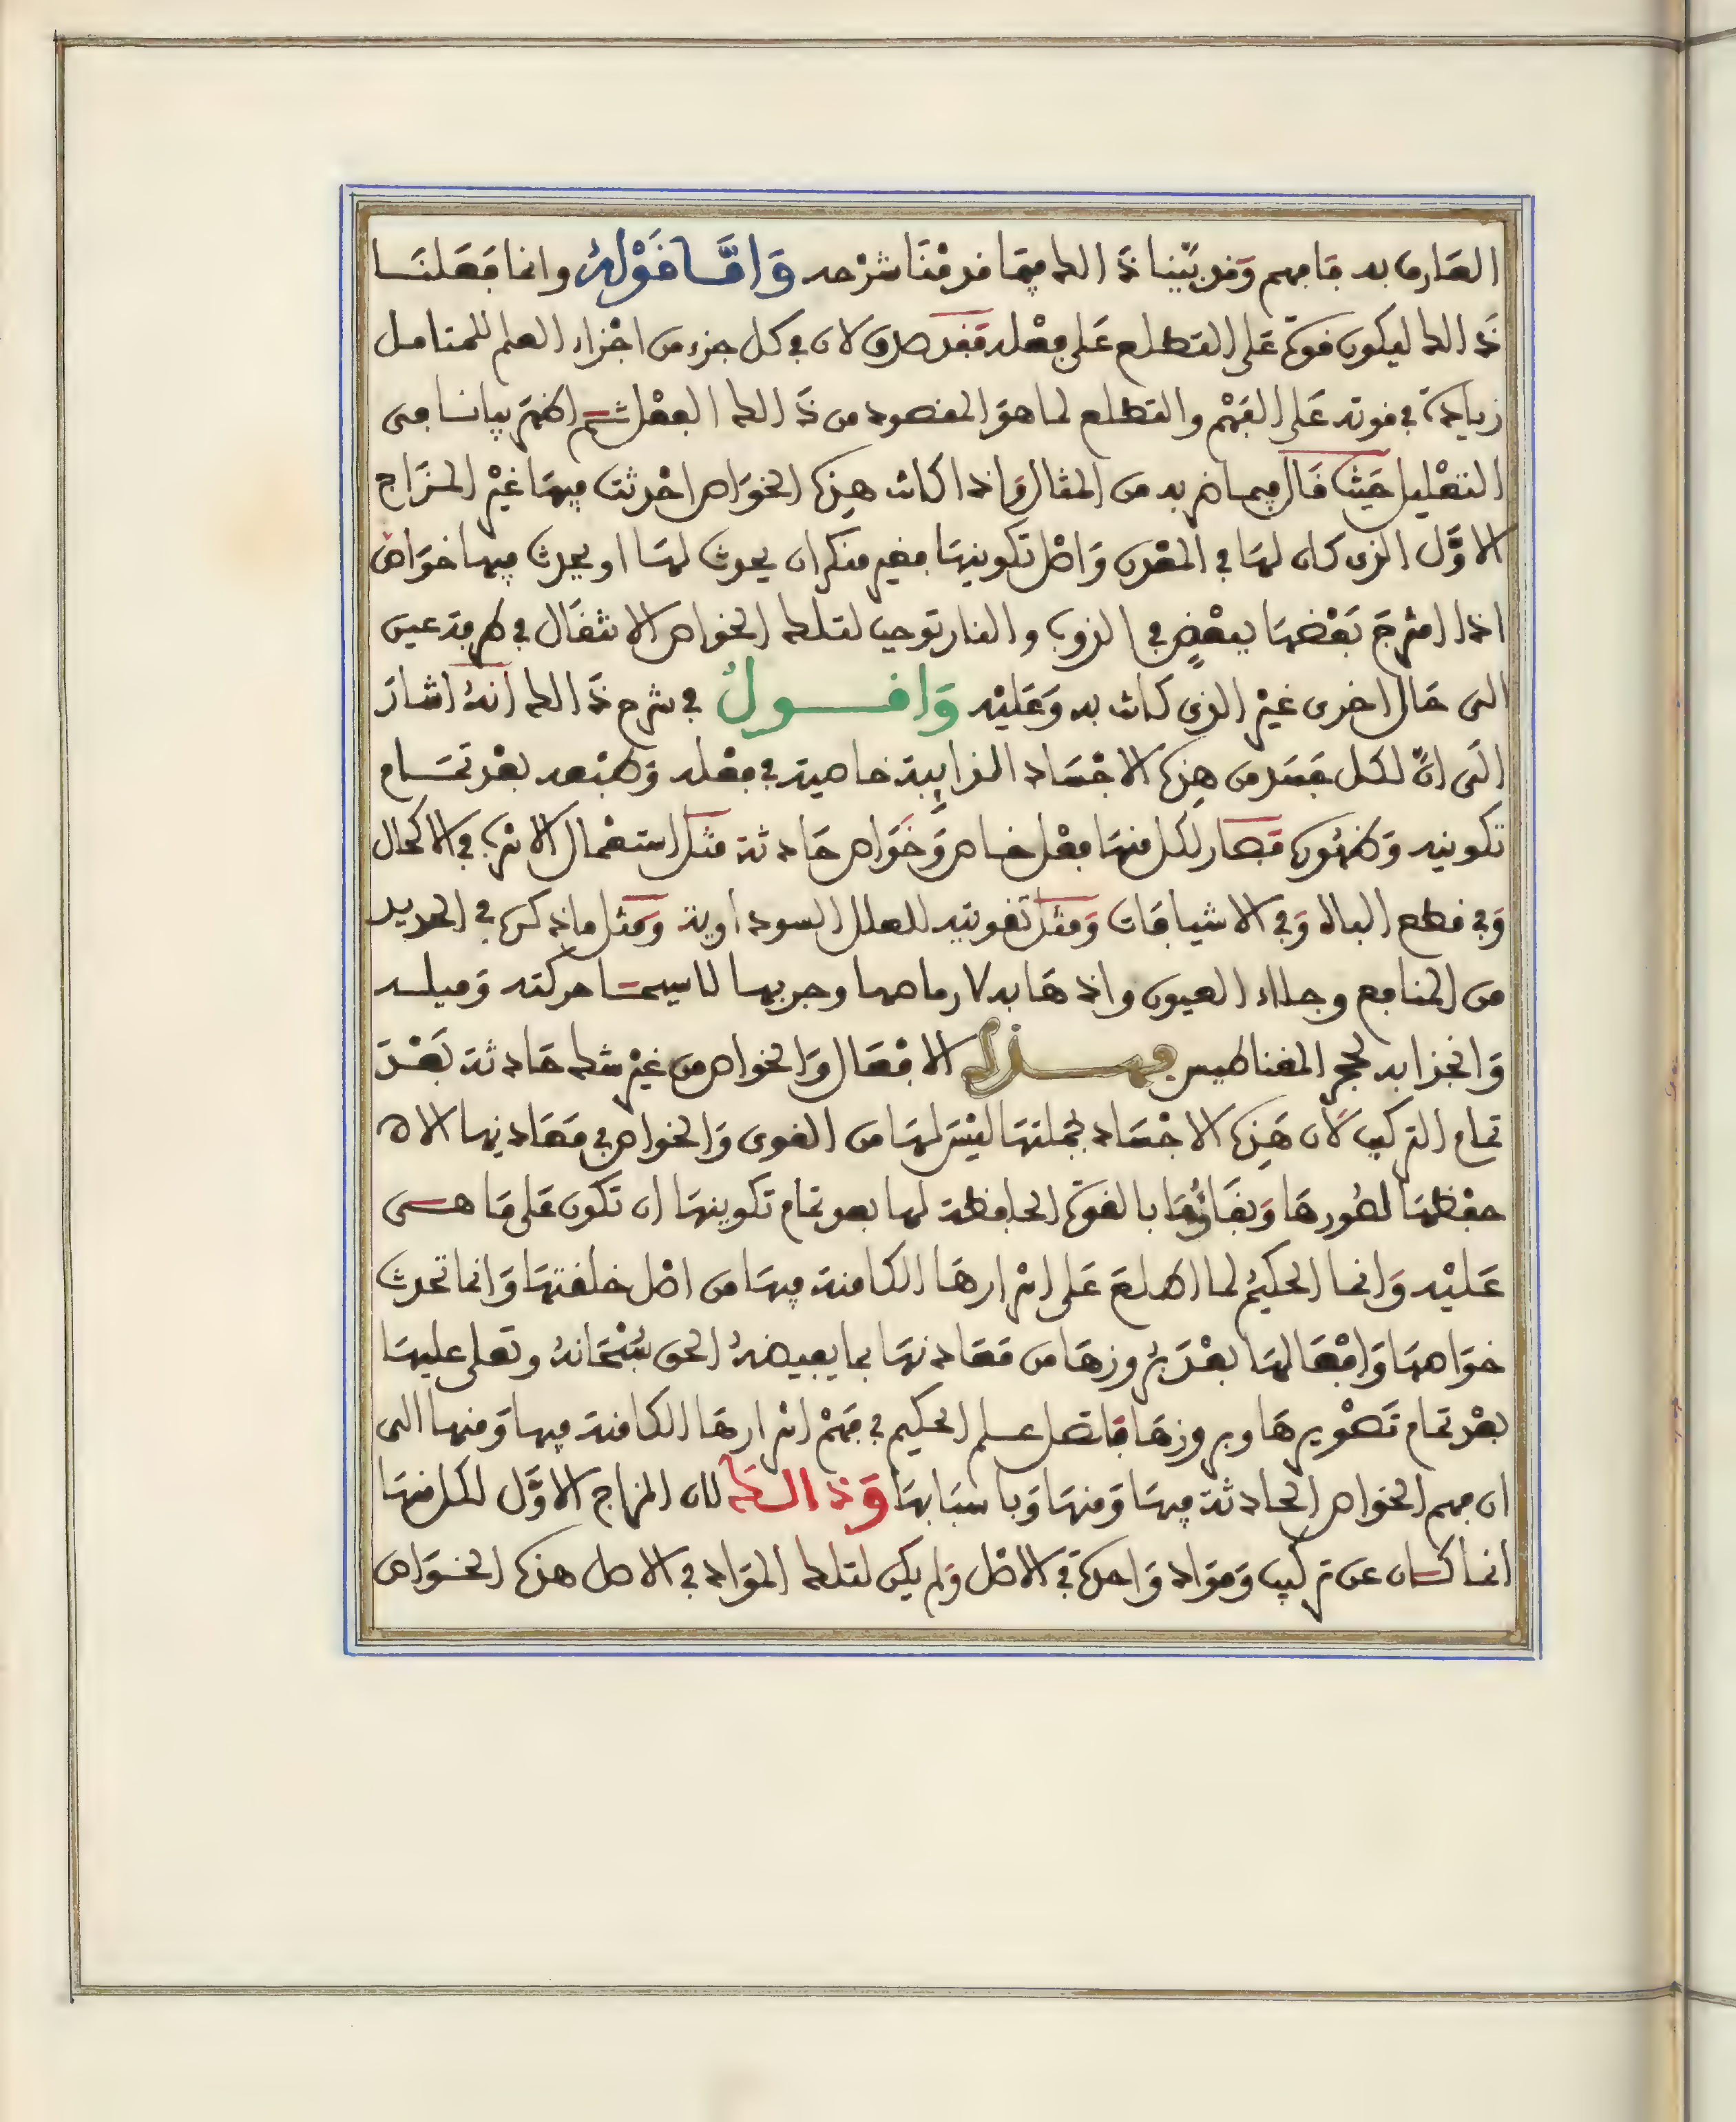 العارف به فافهم وقد بينا ذالك فيما قدمنا شرحه وَامَّا قَوْلهُ وانما فعلنا
ذالك ليكون قوة على التطلع على فعله فقد صدق لان في كل جزء من اجزاء العلم للمتامل
زيادة في قوته على الفهم والتطلع لما هو المقصود من ذالك الفعل ثم اظهر بيانا في
التعليل حيث قال فيما ضربه من المثال واذا كانت هذه الخواص احدثت فيها غير المزاج
الاوَّل الذى كان لها في المعدن واصل تكوينها فغير منكر ان يحدث لها او يحدث فيها خواص
اذا امتزج بعضها ببعضٍ في الذوب والنار توجب لتلك الخواص الانتقال في طرفة عين
الى حال اخرى غير الذي كانت به وعليه وَاقـــولُ في شرح ذالك انهُ اشار
الى انَّ لكل جسد من هذه الاجساد الذايبة خاصية في فعله وطبعه بعد تمام
تكوينه وظهوره فصار لكل منها فعل خاص وخواص حادثة مثل استعمال الاسرب في الاكحال
وفي قطع الباه وفي الاشيافات ومثل تقويته للعلل السوداوية ومثل ما ذكره في الحديد
من المنافع وجلاء العيون واذهابه لارماصها وجربها لاسيما حركته وميله
وانجذابه لحجر المغناطيس فهـــذه الافعال والخواص من غير شك حادثة بعد
تمام التركيب لان هذه الاجساد بجملتها ليس لها من القوى والخواص في معادنها الا
حفظها لصورها وبقائها بالقوة الحافظة لها بعد تمام تكوينها ان تكون على ما هى
عليه وانما الحكيم لما اطلع على اسرارها الكامنة فيها من اصل خلقتها وانما تحدث
خواصها وافعالها بعد بروزها من معادنها بما يفيضهُ الحق سُبْحانهُ وتعلى عليها
بعد تمام تصويرها وبروزها فاتصل علم الحكيم في فهم اسرارها الكامنة فيها ومنها الى
ان فهم الخواص الحادثة فيها ومنها وباسبابها وَذالـك لان المزاج الاوَّل لكل منها
انما كان عن تركيب ومواد واحدة في الاصل ولم يكن لتلك المواد في الاصل هذه الخواص